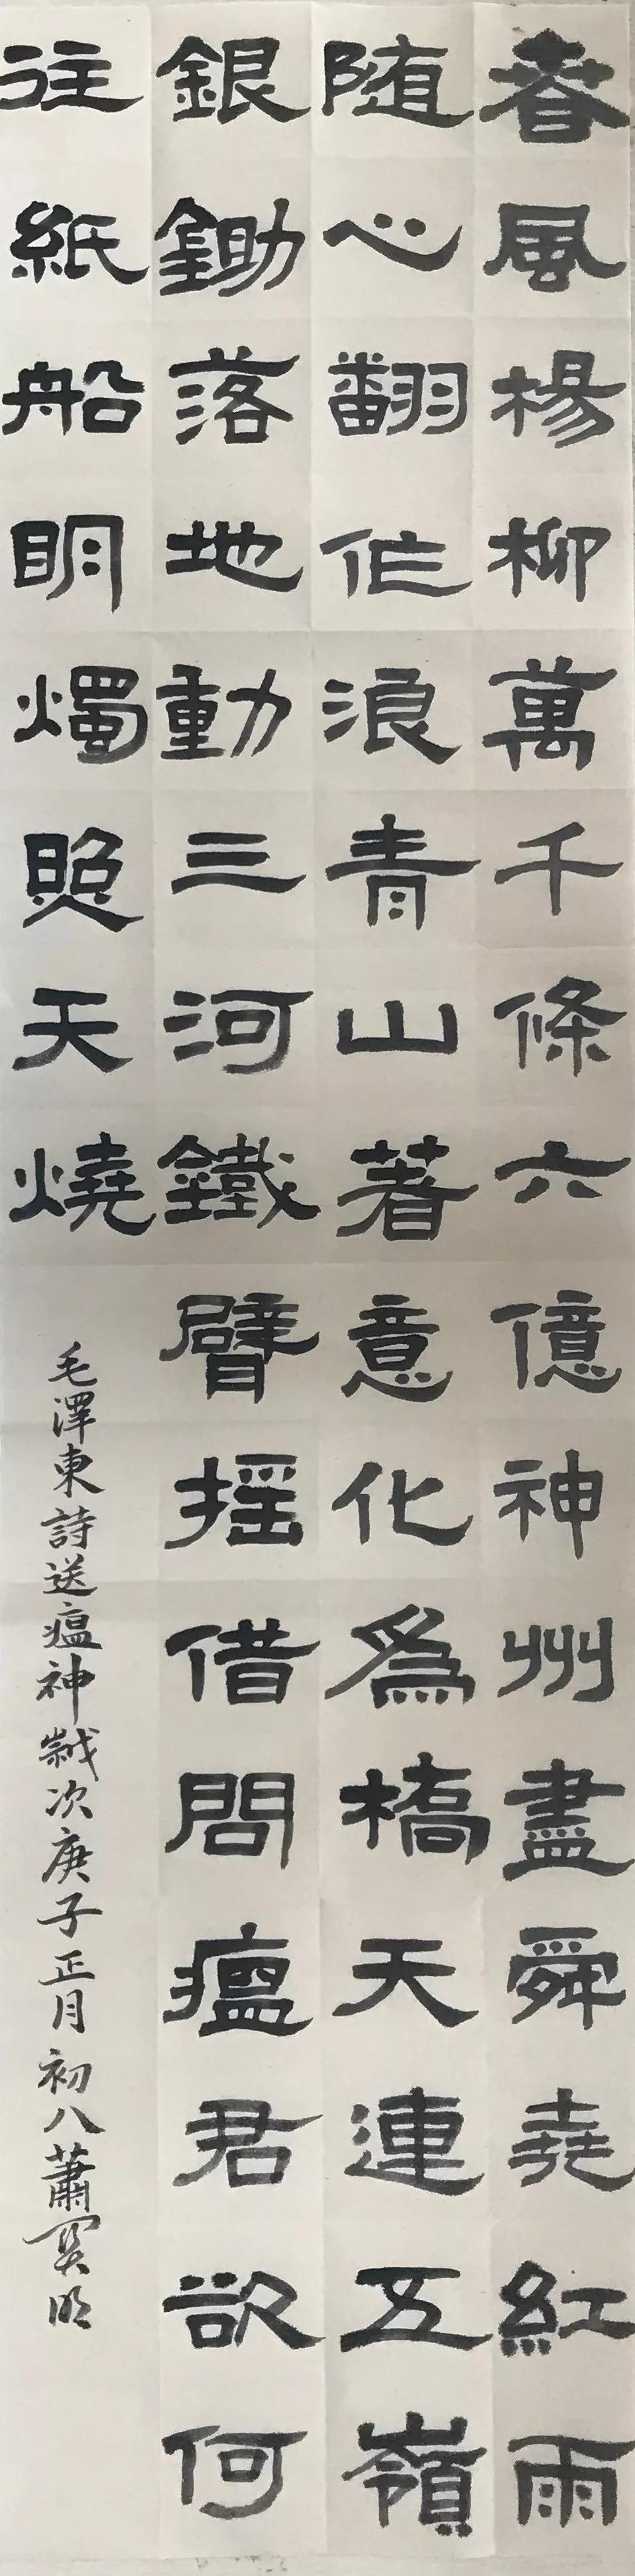 春風楊柳萬千條六億神州盡舜堯紅雨
随心翻作浪青山著意化為橋天連五嶺
銀鋤落地動三河鐵臂摇借問瘟君欲何
往紙船明燭照天燒
毛澤東詩送瘟神歲次庚子正月初八蕭